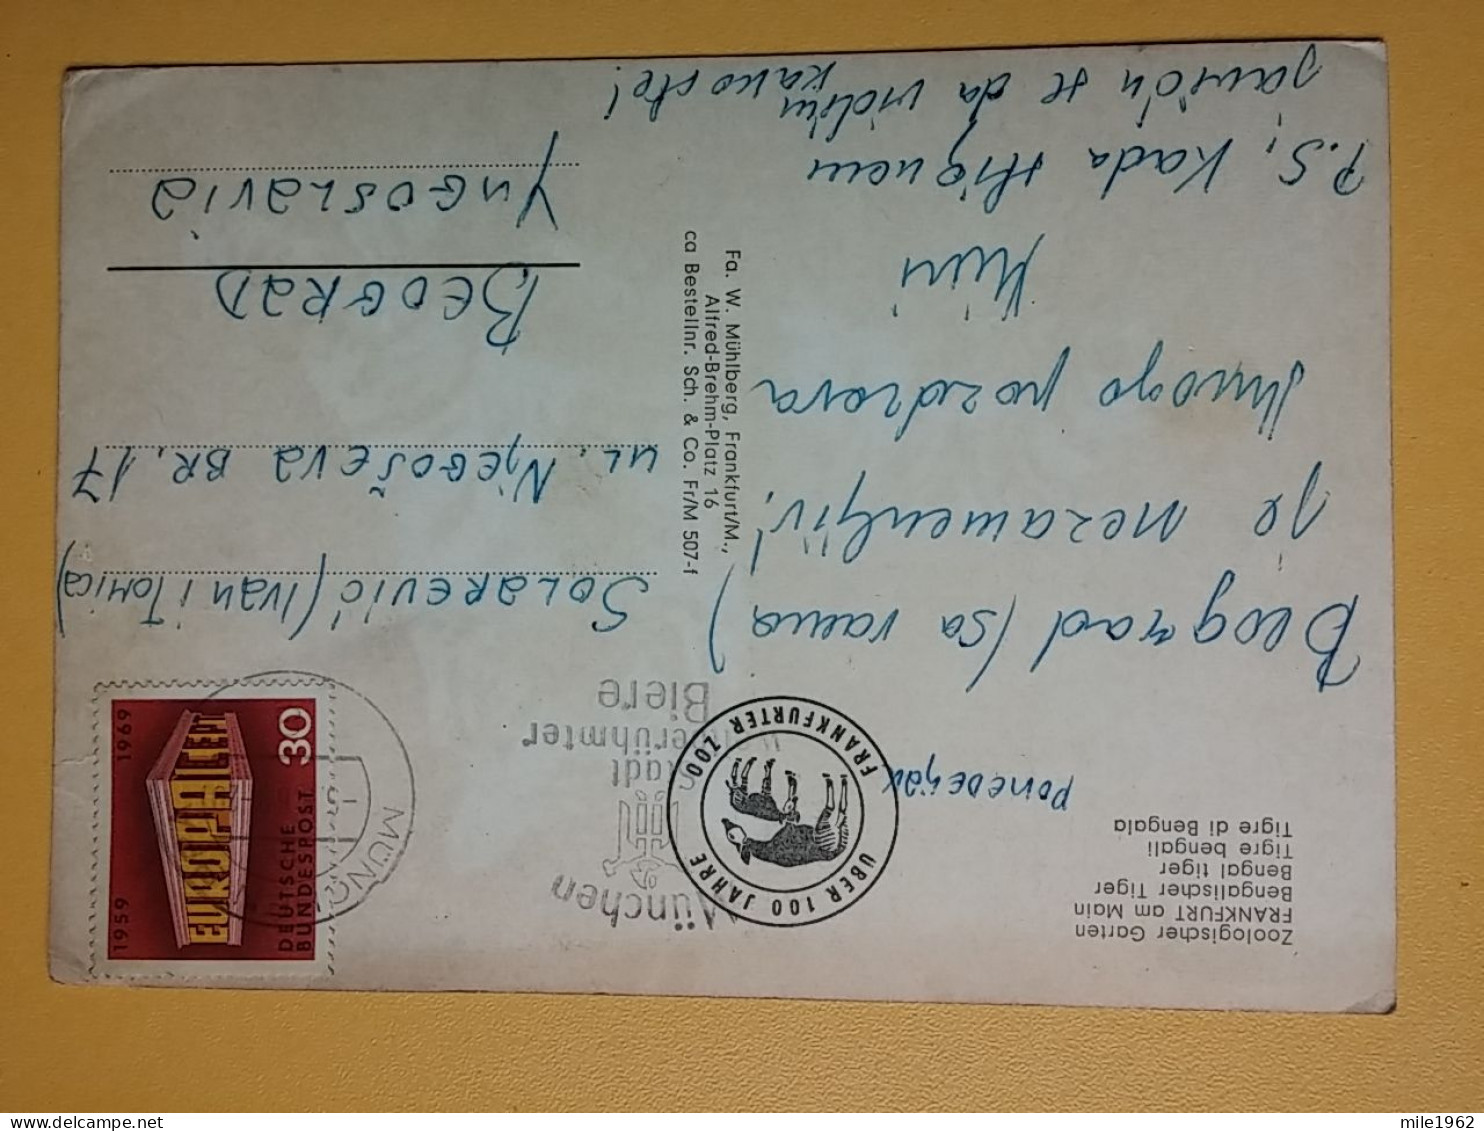 Zoologischer Garten
FRANKFURT am Main
Bengalischer Tiger
Bengal tiger
Tigre bengali
Tigre di Bengala
Ponedeljak
Beograd (sa vama)
je nezamenljiv!
Mnogo pozdrava
P.S. Kada stignem
javiću se da vidim
kako ste!
ÜBER 100 JAHRE
FRANKFURTER ZOO
Fa. W. Mühlberg, Frankfurt/M.,
Alfred-Brehm-Platz 16
ca Bestellnr. Sch. & Co. Fr/M 507-f
München
Stadt
weltberühmter
Biere
MÜNC
1959
1969
EUROPA CEPT
DEUTSCHE
BUNDESPOST
30
SOLAREVIĆ (IVAN i TOMICA)
UL. NJEGOŠEVA BR. 17
BEOGRAD
YUGOSLAVIA
mile1962